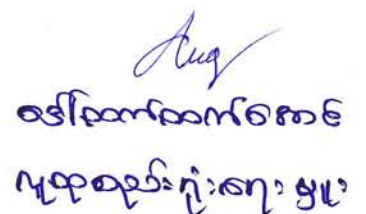 ဒေါ်ထက်ထက်အောင်
လူထုစည်းရုံးရေးမှူး